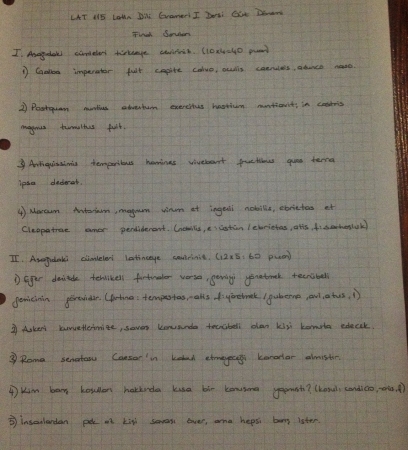 LAT 115 Latin Dili Grameri I Dersi Güz Dönemi
Final Soruları
I. Aşağıdaki cümleleri türkçeye çeviriniz. (10x4=40 puan)
1) Galba imperator fuit capite calvo, oculis caeruleis, adunco naso.
2) Postquam nuntius adventum exercitus hostium nuntiavit, in castris
magnus tumultus fuit.
3) Antiquissimis temporibus homines vivebant fructibus quos terra
ipsa dederat.
4) Marcum Antonium, magnum virum et ingenii nobilis, ebrietas et
Cleopatrae amor perdiderant. (nobilis, e: üstün / ebrietas, atis, f: sarhoşluk)
II. Aşağıdaki cümleleri latinceye çeviriniz. (12x5: 60 puan)
1) Eğer denizde tehlikeli fırtınalar varsa, gemiyi yönetmek tecrübeli
gemicinin görevidir. (fırtına: tempestas, -atis f: yönetmek / guberno, avi, atus, 1)
2) Askeri kuvvetlerimize, savaş konusunda tecrübeli olan kişi komuta edecek.
3) Roma senatosu Caesar'ın kabul etmeyeceği kararlar almıştır.
4) Kim barış koşulları hakkında kısa bir konuşma yapmıştı? (koşul: condicio,
5) İnsanlardan pek az kişi savaşı över, ama hepsi barış ister.